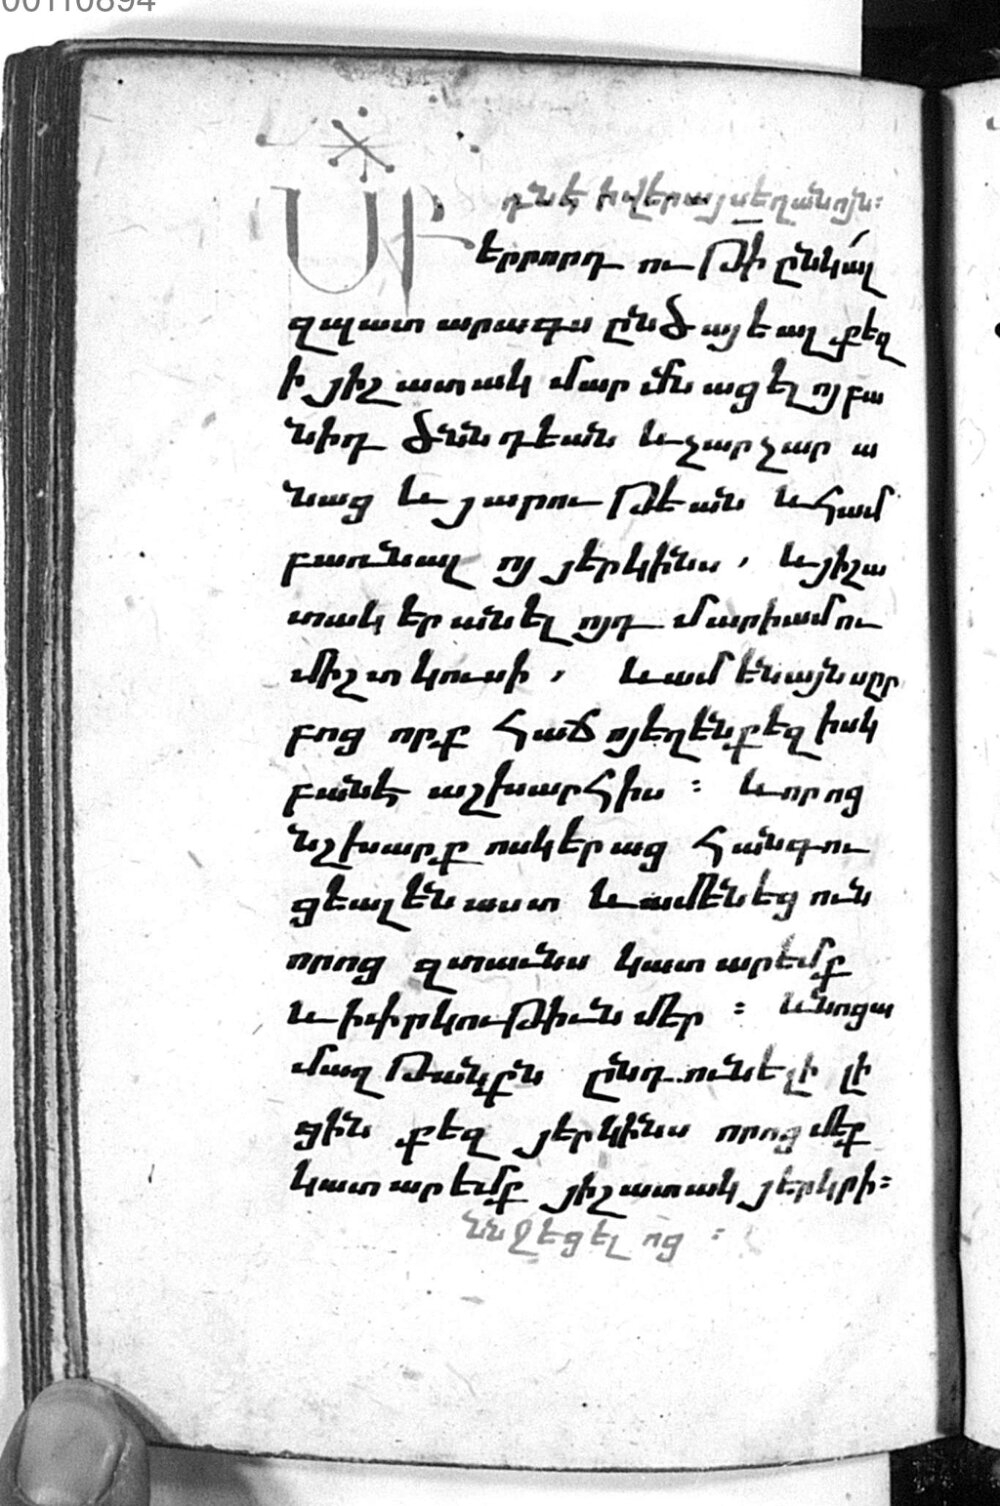 00110894
դնէ ի վերայ սեղանոյն։
Սբ երրորդութի ընկալ
զպատարագս ընծայեալ քեզ
ի յիշատակ մարմնացելոյ բա
նիդ ծննդեան և չարչարա
նաց և յարութեան և համ
բառնալոյ յերկինս, և յիշա
տակ երանելոյդ մարիամու
միշտ կուսի, և ամենայն սըր
բոց որք հաճոյ եղեն քեզ իսկ
բանէ աշխարհիս։ և որոց
նշխարք ոսկերաց հանգու
ցեալ են աստ և ամենեցուն
որոց զտաւնս կատարեմք
և ի փրկութիւն մեր։ և նոցա
մաղթանքըն ընդունելի լի
ցին քեզ յերկինս որոց մեք
կատարեմք յիշատակ յերկրի։
ննջեցելոց։